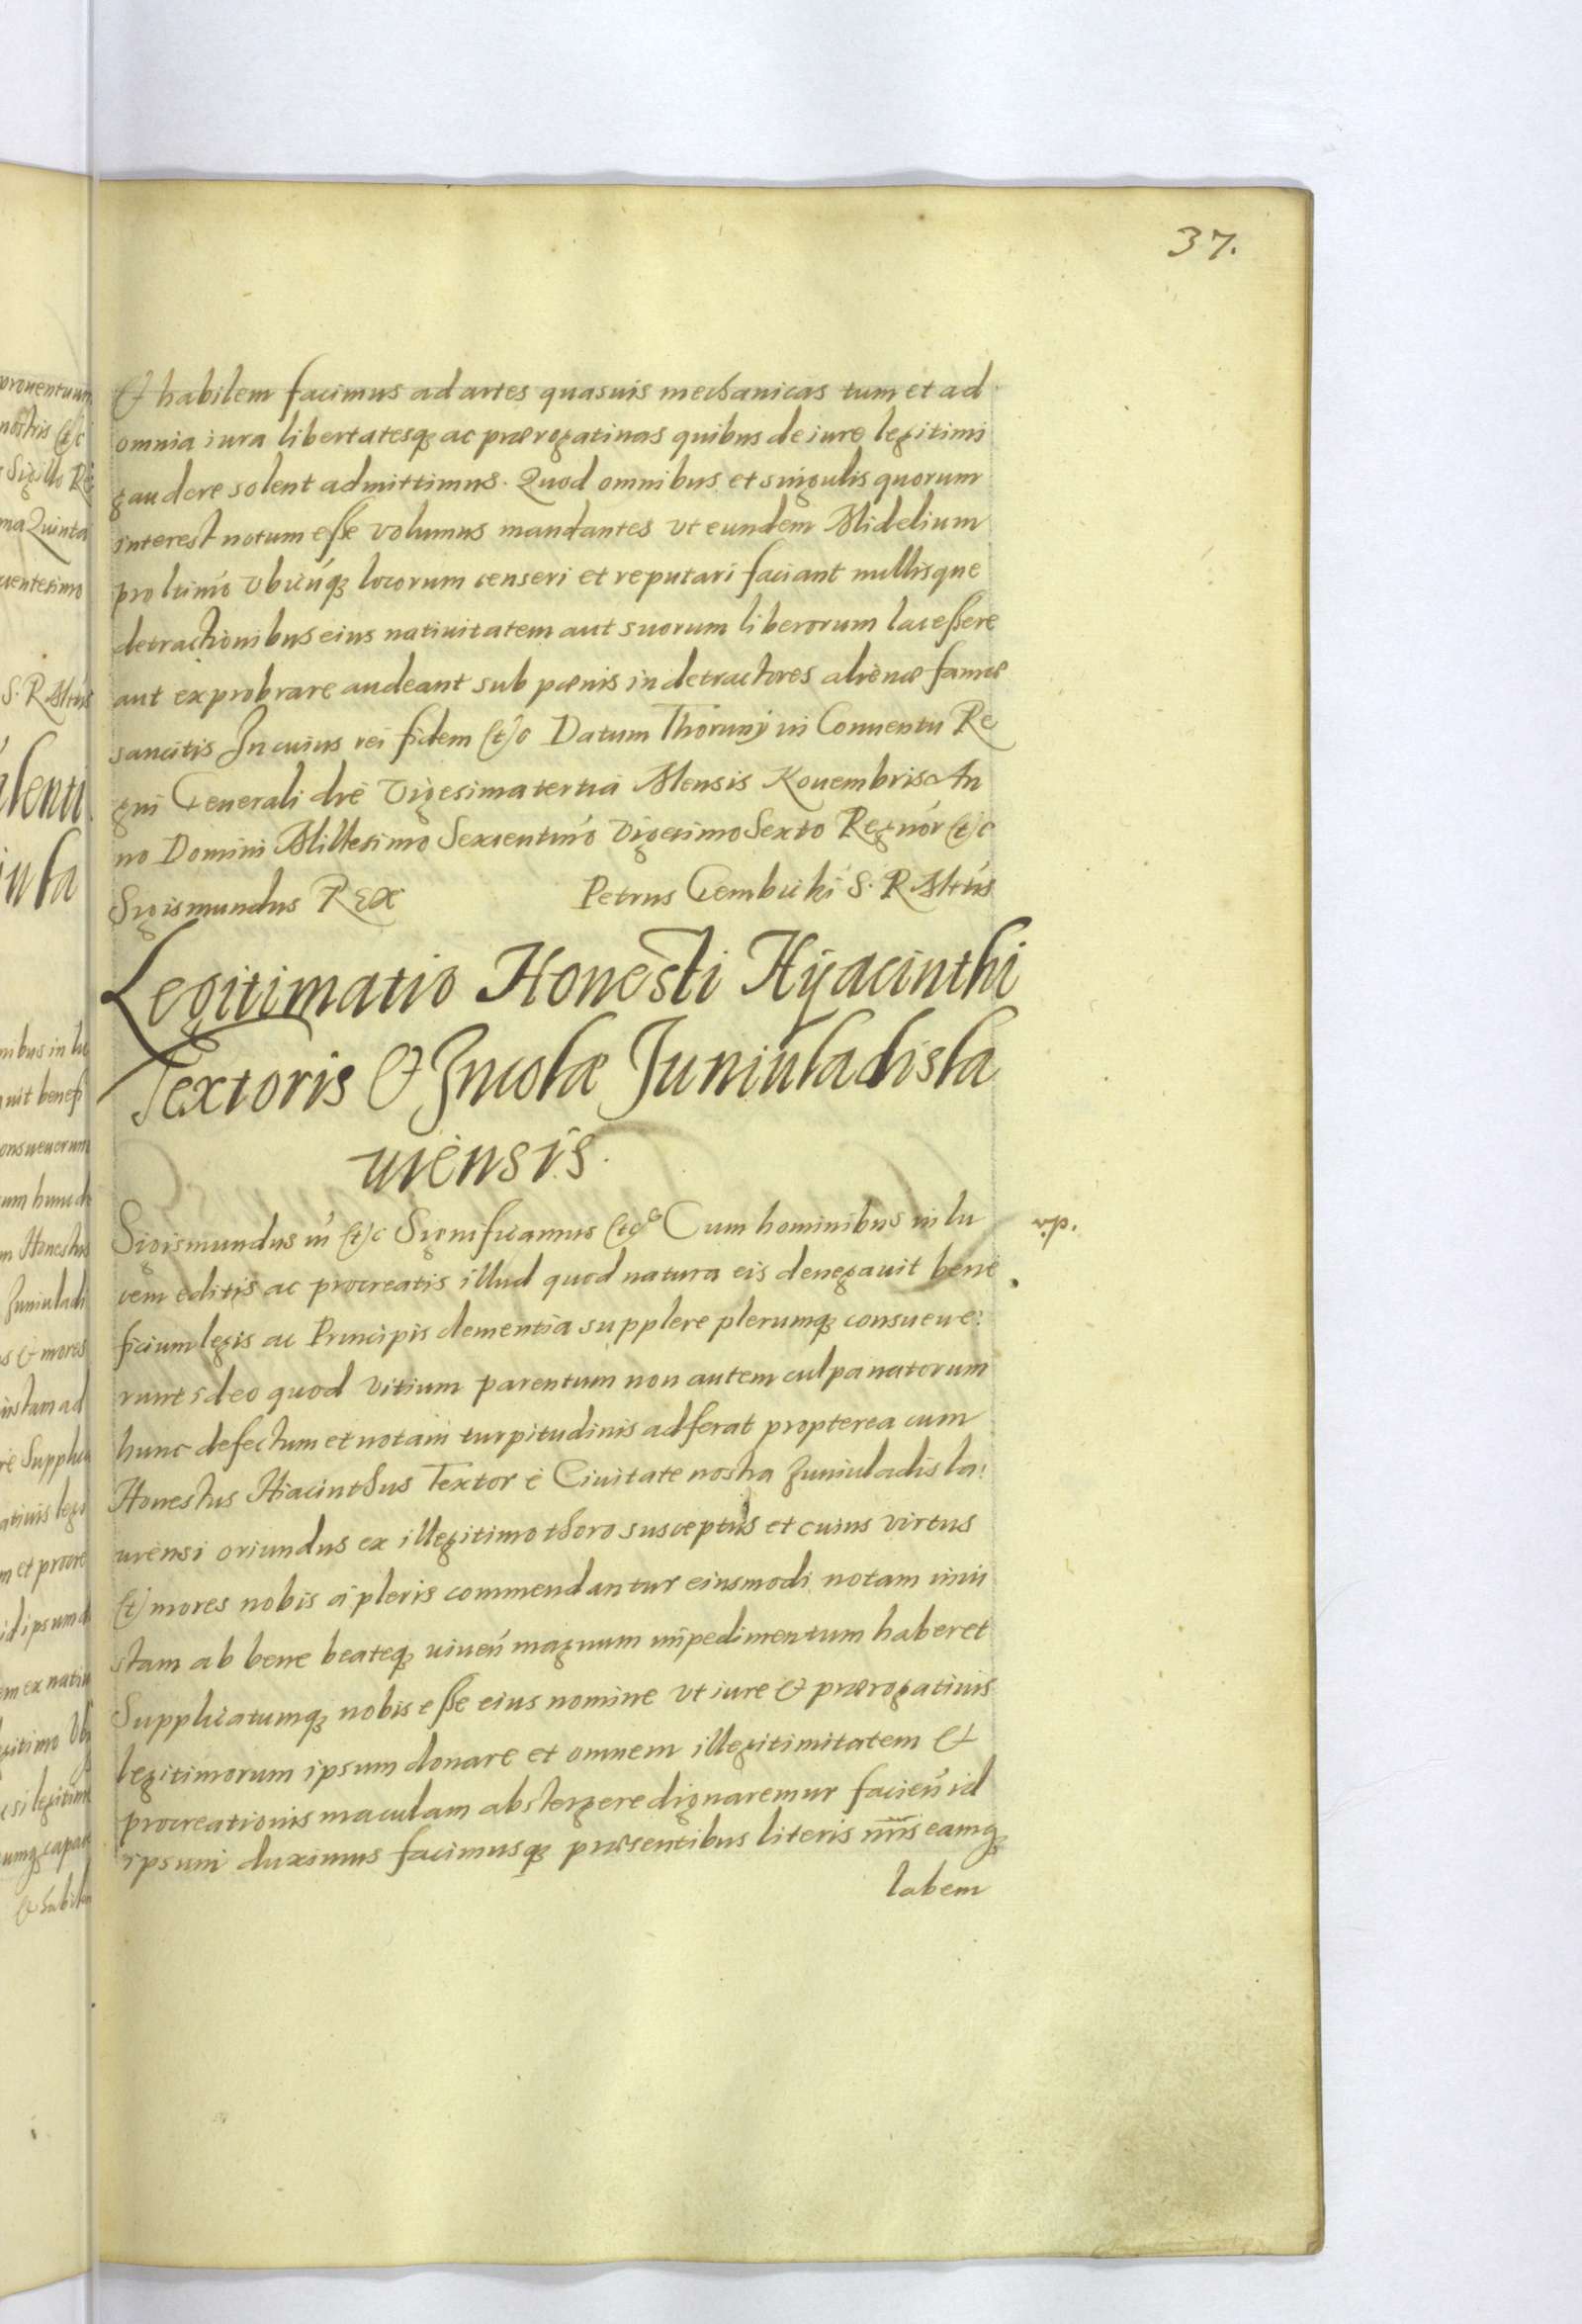 37.
& habilem facimus ad artes quasuis mechanicas tum et ad
omnia iura libertatesq3 ac prærogatiuas quibus de iure legitimi
gaudere solent admittimus. Quod omnibus et singulis quorum
interest notum esse volumus mandantes vt eundem Midelium
pro ltimo vbicunq3 locorum censeri et reputari faciant nullisque
detractionibus eius natiuitatem aut suorum liberorum lacessere
aut exprobrare audeant sub pœnis in detractores alienæ famæ
sancitis In cuius rei fidem &c Datum Thoruny in Conuentu Re
gni Generali die Vigesima tertia Mensis Nouembris An
no Domini Millesimo Sexcentmo Vigesimo Sexto Regnor &c
Sigismundus REX Petrus Gembicki S. R Mtis
Legitimatio Honesti Hyacinthi
Textoris & Incolæ Juniuladisla
uiensis.
Sigismundus iii &c Significamus &c Cum hominibus in lu
cem editis ac procreatis illud quod natura eis denegauit bene
ficium legis ac Principis clementia supplere plerumq3 consueue:
runt ideo quod vitium parentum non autem culpa natorum
hunc defectum et notam turpitudinis adferat propterea cum
Honestus Hiacinthus Textor è Ciuitate nostra Juniuladisla:
uiensi oriundus ex illegitimo thoro susceptus et cuius virtus
& mores nobis a pleris commendantur eiusmodi notam iniu
stam ab bene beateq3 uiuen magnum impedimentum haberet
Supplicatumq3 nobis esse eius nomine vt iure & prærogatiuis
legitimorum ipsum donare et omnem illegitimitatem &
procreationis maculam abstergere dignaremur facien id
ipsum duximus facimusq3 præsentibus literis nris eamq3
labem